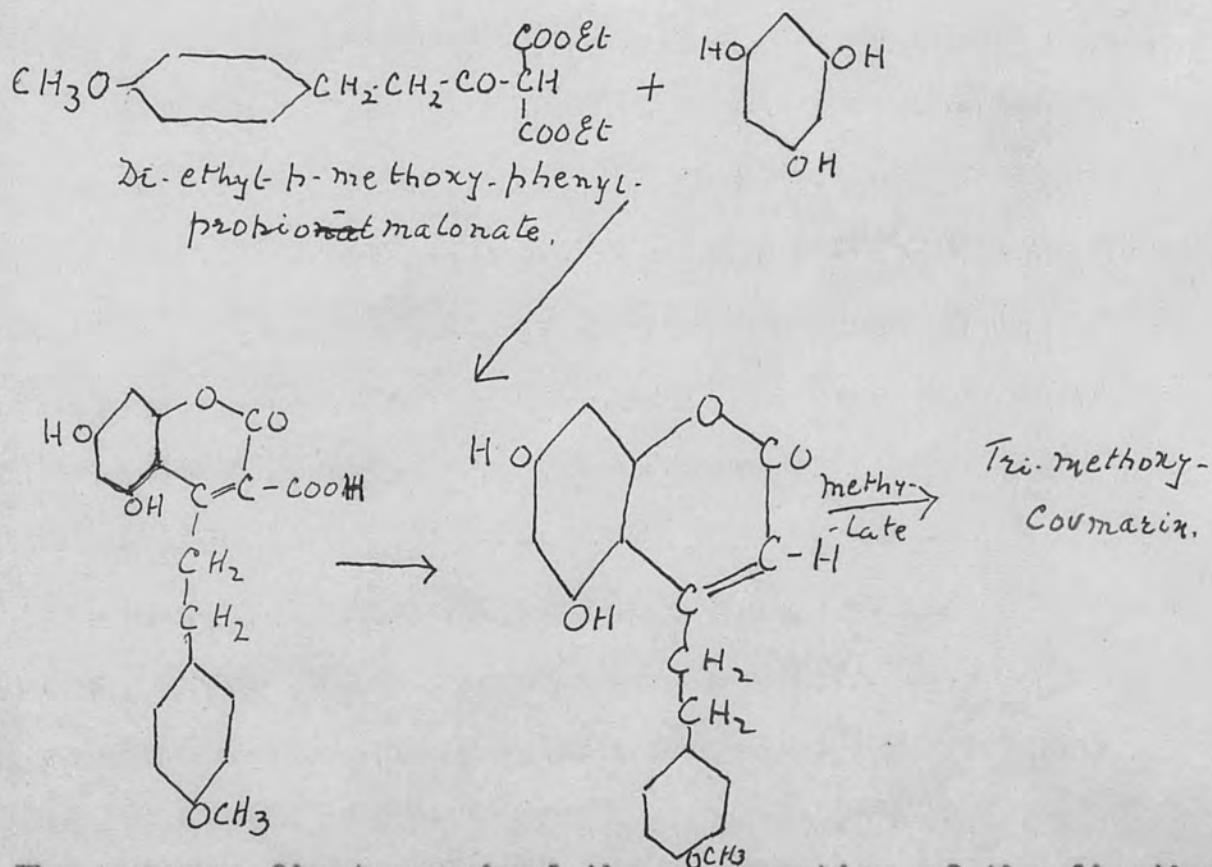 COOEt
CH3O CH2-CH2-CO-CH +
COOEt
HO OH
OH
Di-ethyl-p-methoxy-phenyl-
propion̶a̶t̶ malonate.
O
CO
HO
OH C=C-COOH
CH2
CH2
OCH3
O
HO CO
C-H
OH C
CH2
CH2
OCH3
methy-
-late
Tri-methoxy-
Coumarin.